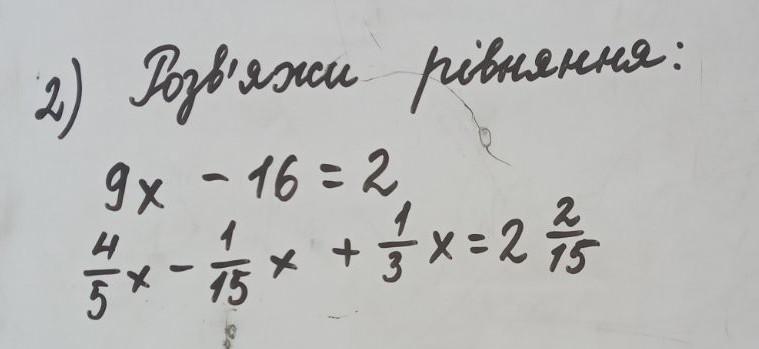 2) Розв'яжи рівняння:
9x - 16 = 2
4/5 x - 1/15 x + 1/3 x = 2 2/15